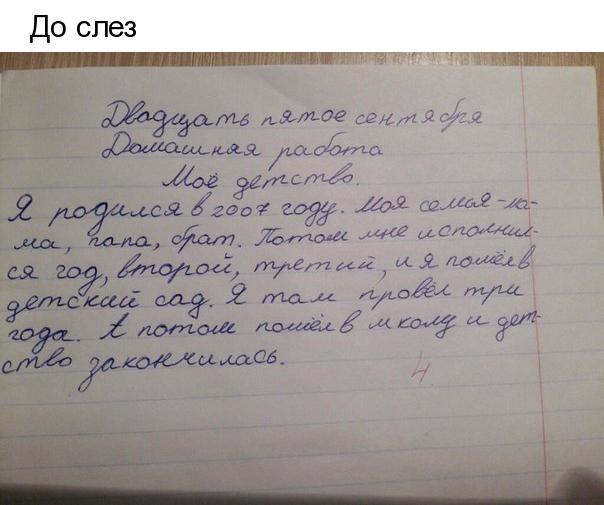 До слез
Двадцать пятое сентября
Домашняя работа
Моё детство.
Я родился в 2007 году. Моя семья - ма-
ма, папа, брат. Потом мне исполнил-
ся год, второй, третий, и я пошёл в
детский сад. Я там провёл три
года. А потом пошёл в школу и дет-
ство закончилась.
4